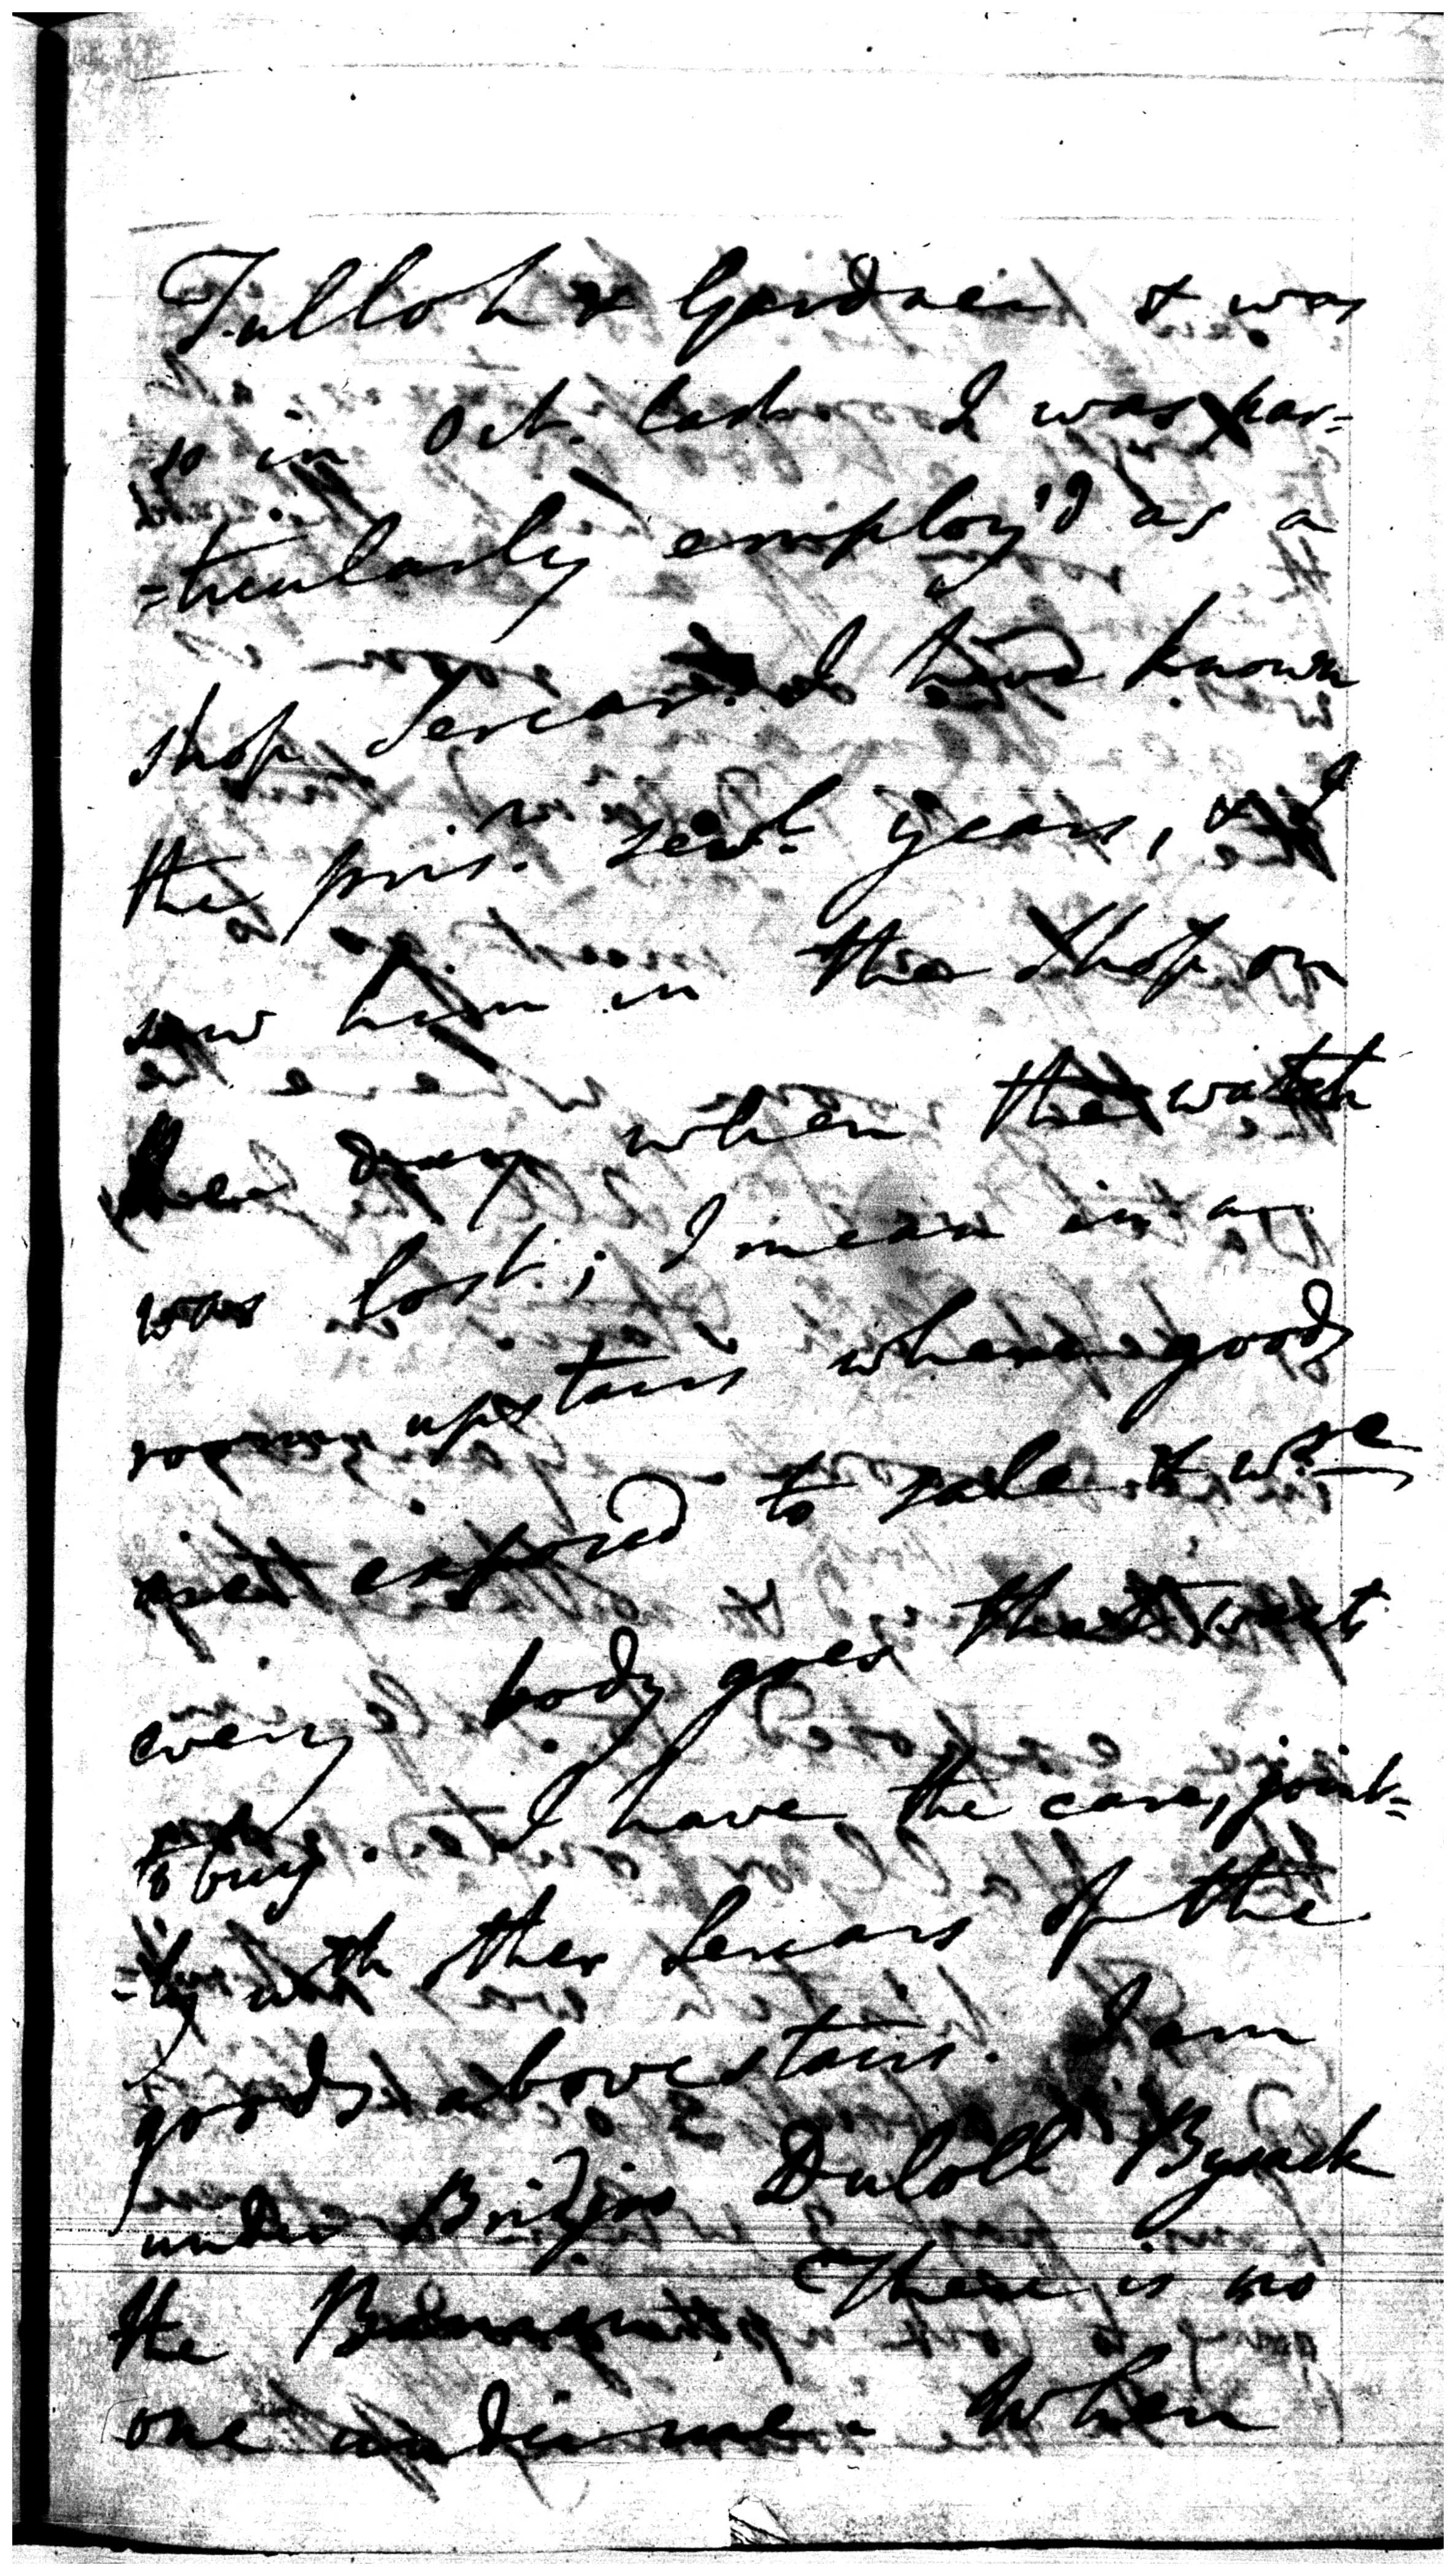 Tulloh & Gardner & was
so in Oct. last. I was par=
=ticularly employ'd as a
shop Sercar. I have known
the pris.r sev.l years, & I
saw him in the shop on
the day when the watch
was lost; I mean in a
room upstairs where goods
are exposed to sale & w.re
every body goes that wants
to buy. I have the care, joint=
=ly with other Sercars of the
goods above stairs. I am
under Brizjoo Duloll Bysack
the Banian. There is no
one under me. When